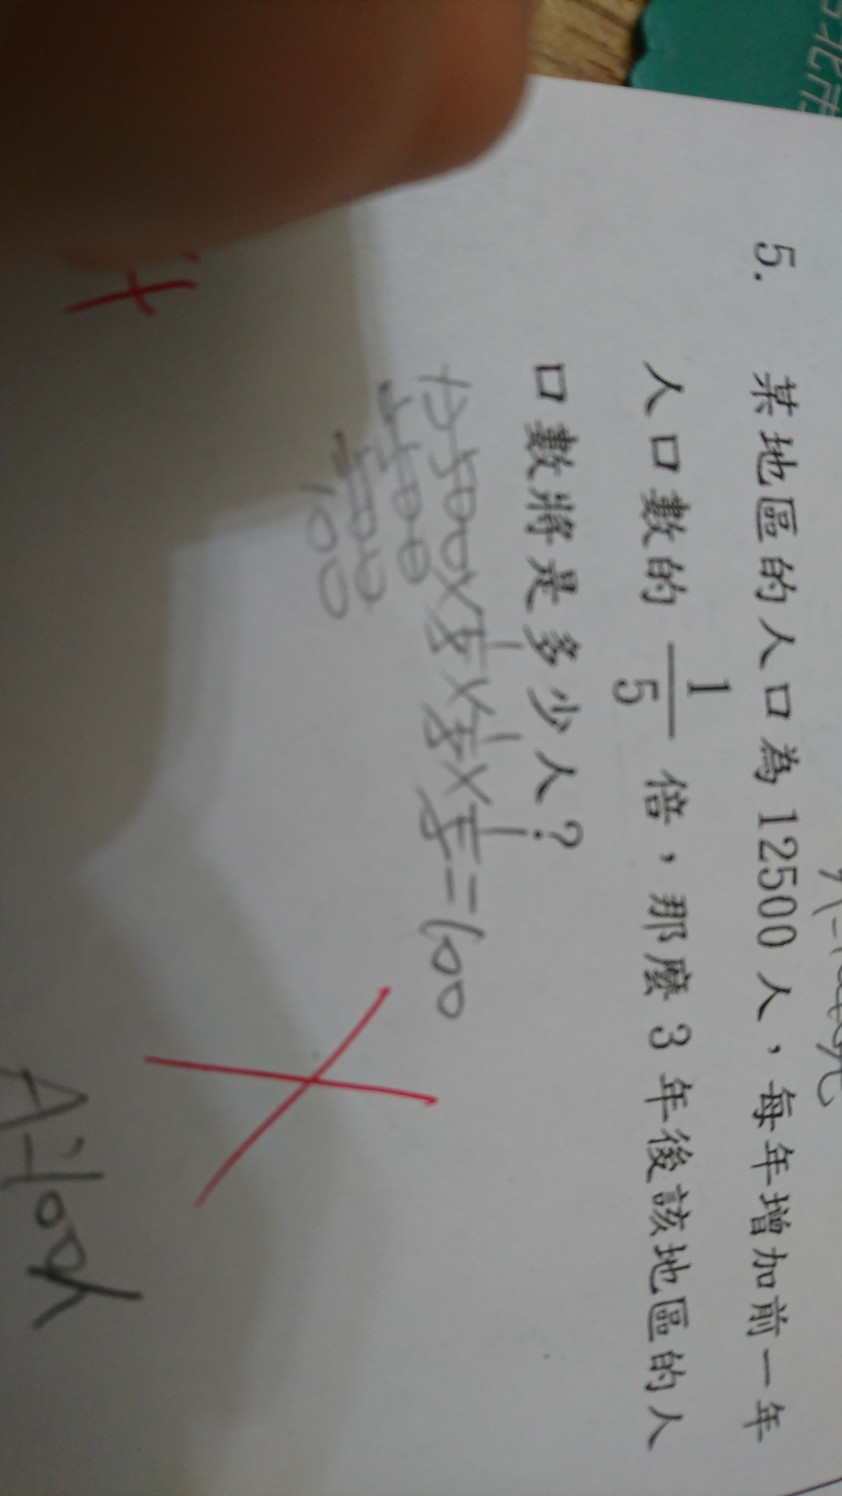 5. 某地區的人口為 12500 人，每年增加前一年
人口數的 1/5 倍，那麼 3 年後該地區的人
口數將是多少人？
12500×1/5×1/5×1/5=100
2500
500
100
A:100人